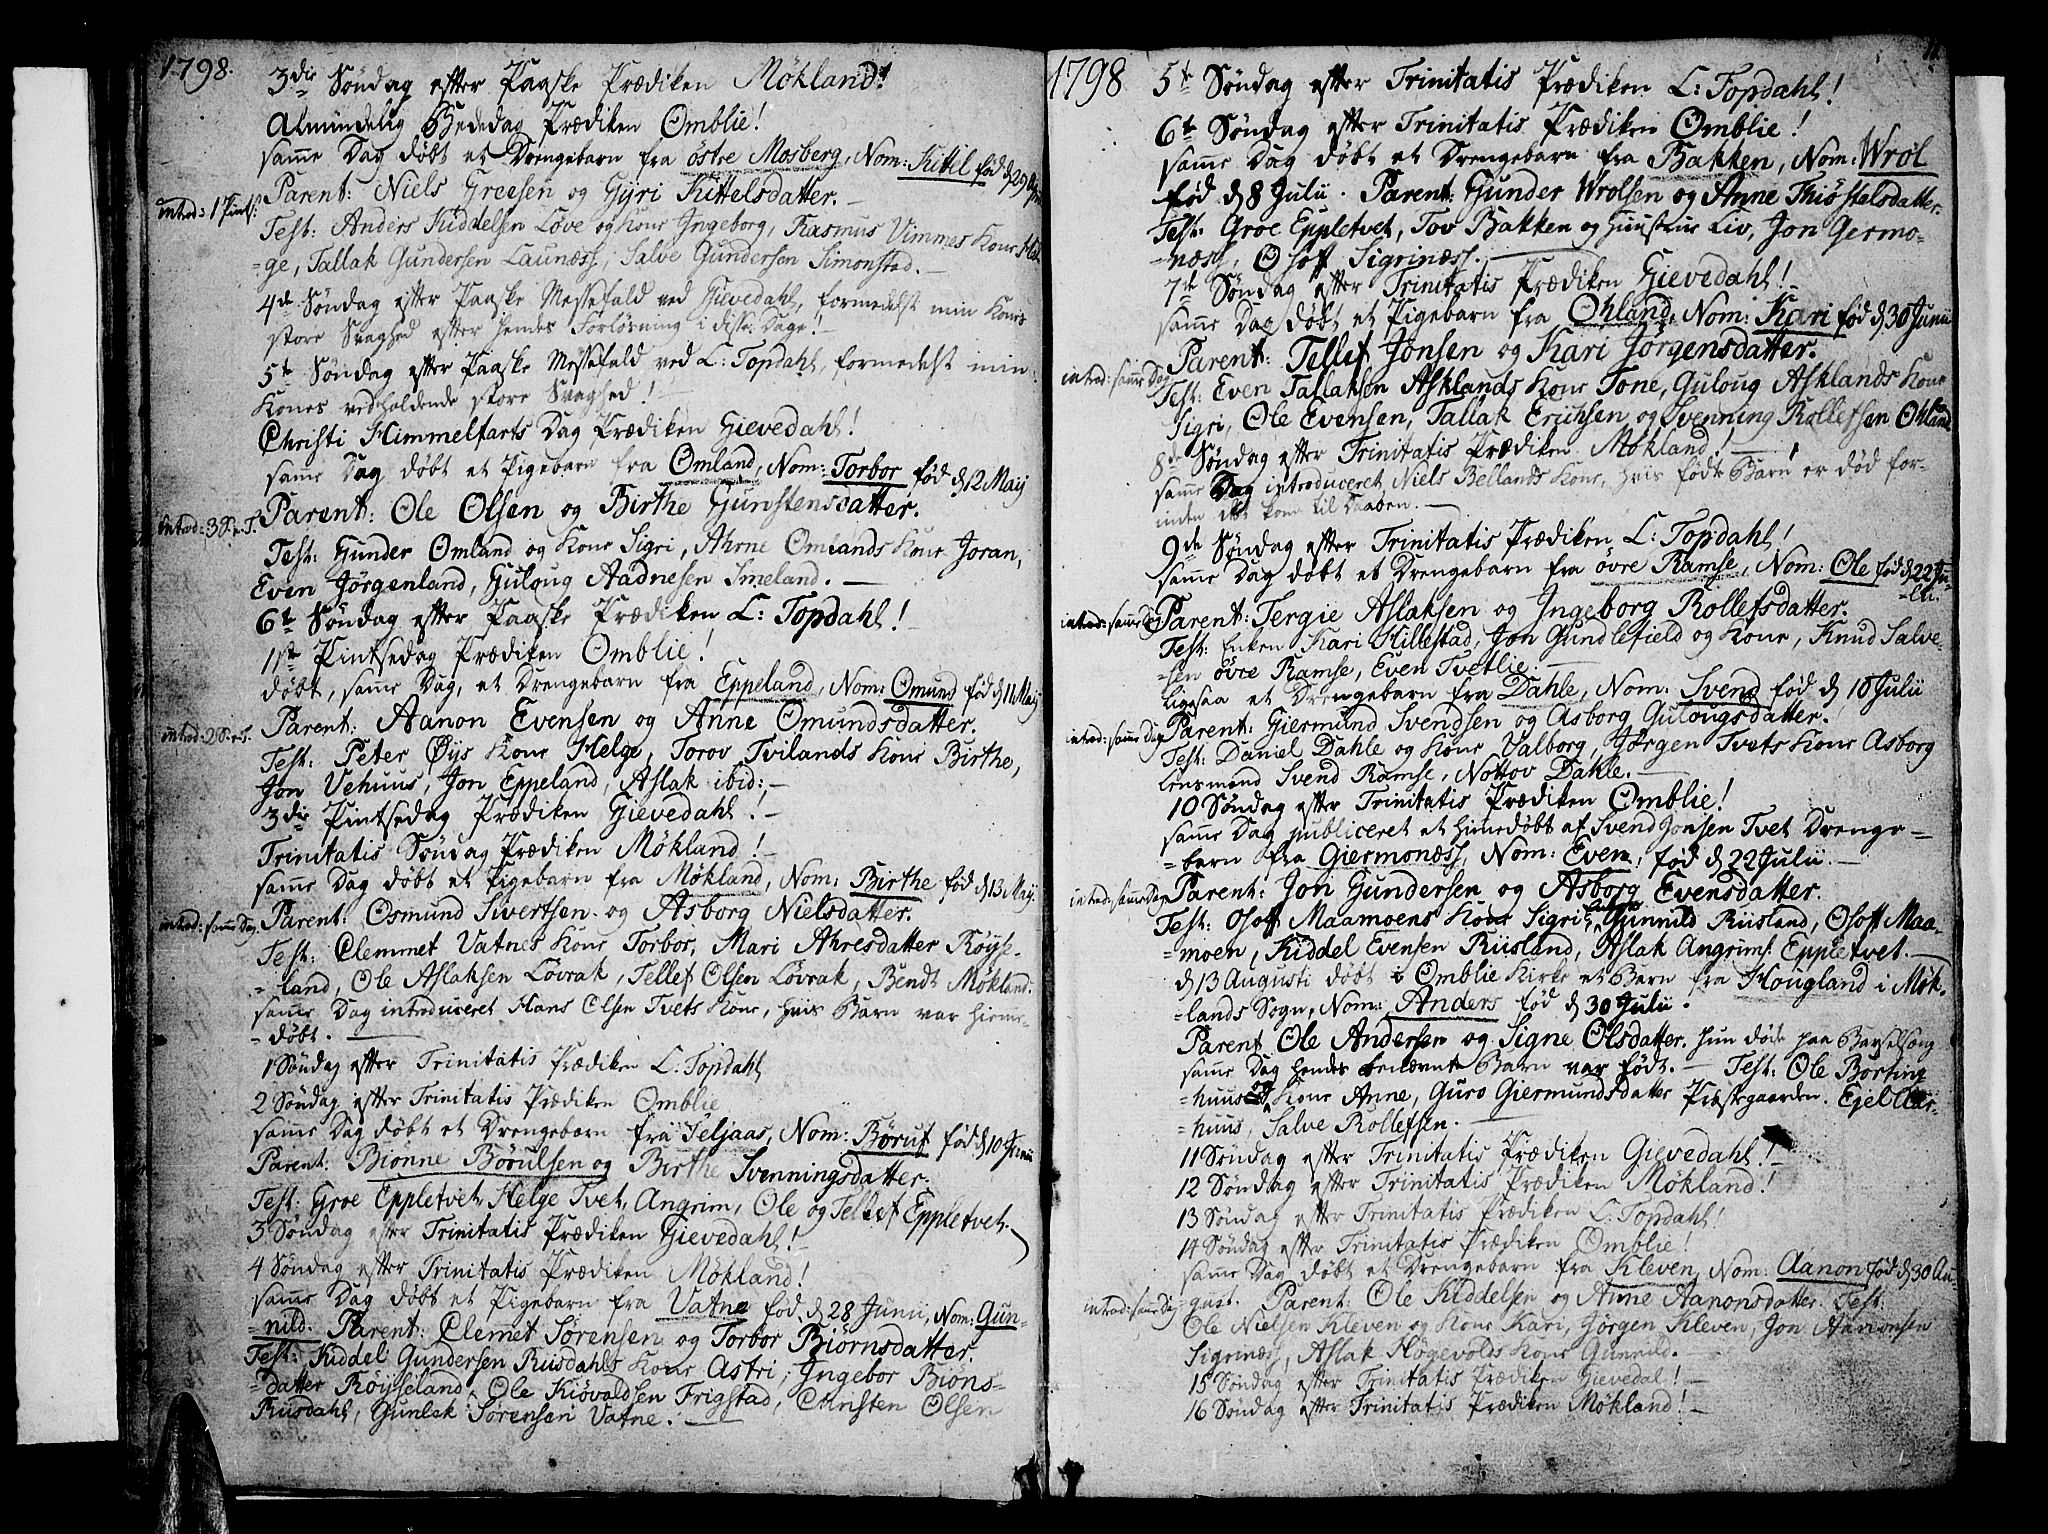 1798.
3die Søndag efter Paaske Prædiken Møkland!
Almindelig Bededag Prædiken Omblie!
samme Dag døbt et Drengebarn fra østre Mosberg, Nom: Kittel fød d 29 Apr
introd: 1 Pints:
Parent: Niels Greesen og Gyri Kittelsdatter.
Test: Anders Kiddelsen Løve og Kone Ingeborg, Rasmus Vimmes Kone Hel-
-ge, Tallak Gundersen Launæss, Salve Gundersen Simonstad.
4de Søndag efter Paaske Messefald ved Gievedahl, formedelst min Kones
store Svaghed efter hendes Forløsning i disse Dage!
5te Søndag efter Paaske Messefald ved L: Topdahl, formedelst min
Kones vedholdende store Svaghed!
Christi Himmelfarts Dag Prædiken Gievedahl!
samme Dag døbt et Pigebarn fra Omland, Nom: Torbor fød d 12 Maij
introd: 3 S. e. T.
Parent: Ole Olsen og Birthe Gunstensdatter.
Test: Gunder Omland og Kone Sigri, Ahrne Omlands Kone Joran,
Even Jørgenland, Guloug Aadnesen Smeland.
6te Søndag efter Paaske Prædiken L: Topdahl!
1ste Pintsedag Prædiken Omblie!
døbt, samme Dag, et Drengebarn fra Eppeland, Nom: Omund fød d 11 Maij
introd: 2 S. e. T.
Parent: Aanon Evensen og Anne Omundsdatter.
Test: Peter Øys Kone Helge, Torov Tvilands Kone Birthe,
Jon Vehuus, Jon Eppeland, Aslak ibid:
3die Pintsedag Prædiken Gievedahl!
Trinitatis Søndag Prædiken Møkland!
samme Dag døbt et Pigebarn fra Møkland, Nom: Birthe fød d 13 Maij.
introd: samme Dag
Parent: Osmund Sivertsen og Asborg Nielsdatter.
Test: Clemmet Vatnes Kone Torbor, Mari Ahresdatter Røyse-
-land, Ole Aslaksen Løvrak, Tellef Olsen Løvrak, Bendt Møkland.
samme Dag introduceret Hans Olsen Tvets Kone, hvis Barn var hieme-
-døbt.
1 Søndag efter Trinitatis Prædiken L: Topdahl
2 Søndag efter Trinitatis Prædiken Omblie
samme Dag døbt et Drengebarn fra Seljaas, Nom: Børuf fød d 10 Junii
Parent: Biønne Børulsen og Birthe Svenningsdatter.
Test: Groe Eppletvet, Helge Tvet, Angrim, Ole og Tellef Eppletvet.
3 Søndag efter Trinitatis Prædiken Gievedahl!
4 Søndag efter Trinitatis Prædiken Møkland!
samme Dag døbt et Pigebarn fra Vatne fød d 28 Junii, Nom: Gun-
-nild. Parent: Clemet Sørensen og Torbor Biørnsdatter.
Test: Kiddel Gundersen Riisdahls Kone Astri, Ingebor Biøns-
-datter Røyseland, Ole Kiøvaldsen Frigstad, Christen Olsen
Riisdahl, Gunlak Sørensen Vatne.
1798
5te Søndag efter Trinitatis Prædiken L: Topdahl!
6te Søndag efter Trinitatis Prædiken Omblie!
samme Dag døbt et Drengebarn fra Bakken, Nom: Wrol
fød d 8 Julii. Parent: Gunder Wrolsen og Anne Thiøstelsdatter.
Test: Groe Eppletvet, Tov Bakken og Huustrue Liv, Jon Germo-
-næss, Osoff Sigrinæss.
7de Søndag efter Trinitatis Prædiken Gievedahl!
samme Dag døbt et Pigebarn fra Ohland, Nom: Kari fød d 30 Junii
introd: samme Dag
Parent: Tellef Jonsen og Kari Jørgensdatter.
Test: Even Tallaksen Asklands Kone Tone, Guloug Asklands Kone
Sigri, Ole Evensen, Tallak Erichsen og Svenning Rollefsen Ohland.
8de Søndag efter Trinitatis Prædiken Møkland!
samme Dag introduceret Niels Bellands Kone, hvis fødte Barn er død for-
inden det kom til Daaben.
9de Søndag efter Trinitatis Prædiken L: Topdahl!
samme Dag døbt et Drengebarn fra øvre Ramse, Nom: Ole fød d 22 Ju-
-lii.
introd: samme Dag
Parent: Tergie Aslaksen og Ingeborg Rollefsdatter.
Test: Enken Kari Hillestad, Jon Gundlefield og Kone, Knud Salve-
-sen øvre Ramse, Even Tvetlie.
Ligesaa et Drengebarn fra Dahle, Nom: Svend fød d 18 Julii
introd: samme Dag
Parent: Giermund Svendsen og Asborg Gulougsdatter.
Test: Daniel Dahle og Kone Valborg, Jørgen Tvets Kone Asborg
Lensmand Svend Ramse, Nottov Dahle.
10 Søndag efter Trinitatis Prædiken Omblie!
samme Dag publiceret et hiemedøbt af Svend Jonsen Tvet Drenge-
-barn fra Giermonæss, Nom: Even, fød d 22 Julii.
introd: samme Dag
Parent: Jon Gundersen og Asborg Evensdatter.
Test: Osoff Maamoens Kone Sigri, Gunnild Riisland, Osoff Maa-
-moen, Kiddel Evensen Riisland, Aslak Angrims. Eppletvet.
d 13 Augusti døbt i Omblie Kirke et Barn fra Hougland i Møk-
-lands Sogn, Nom: Anders fød d 30 Julii.
Parent Ole Andersen og Signe Olsdatter. hun døde paa Barselseng
samme Dag hendes benævnte Barn var født. Test: Ole Borting
-huus og Kone Anne, Guro Giermundsdatter Præstegaarden. Ejel Aar-
-huus, Salve Rollefsen.
11 Søndag efter Trinitatis Prædiken Gievedahl!
12 Søndag efter Trinitatis Prædiken Møkland!
13 Søndag efter Trinitatis Prædiken L: Topdahl!
14 Søndag efter Trinitatis Prædiken Omblie!
samme Dag døbt et Drengebarn fra Kleven, Nom: Aanon fød d 30 Au-
introd: samme Dag
gust. Parent: Ole Kiddelsen og Anne Aanonsdatter. Test:
Ole Nielsen Kleven og Kone Kari, Jørgen Kleven, Jon Aanonsen
Sigrinæss, Aslak Høgevolds Kone Gunnild.
15 Søndag efter Trinitatis Prædiken Gievedal!
16 Søndag efter Trinitatis Prædiken Møkland!